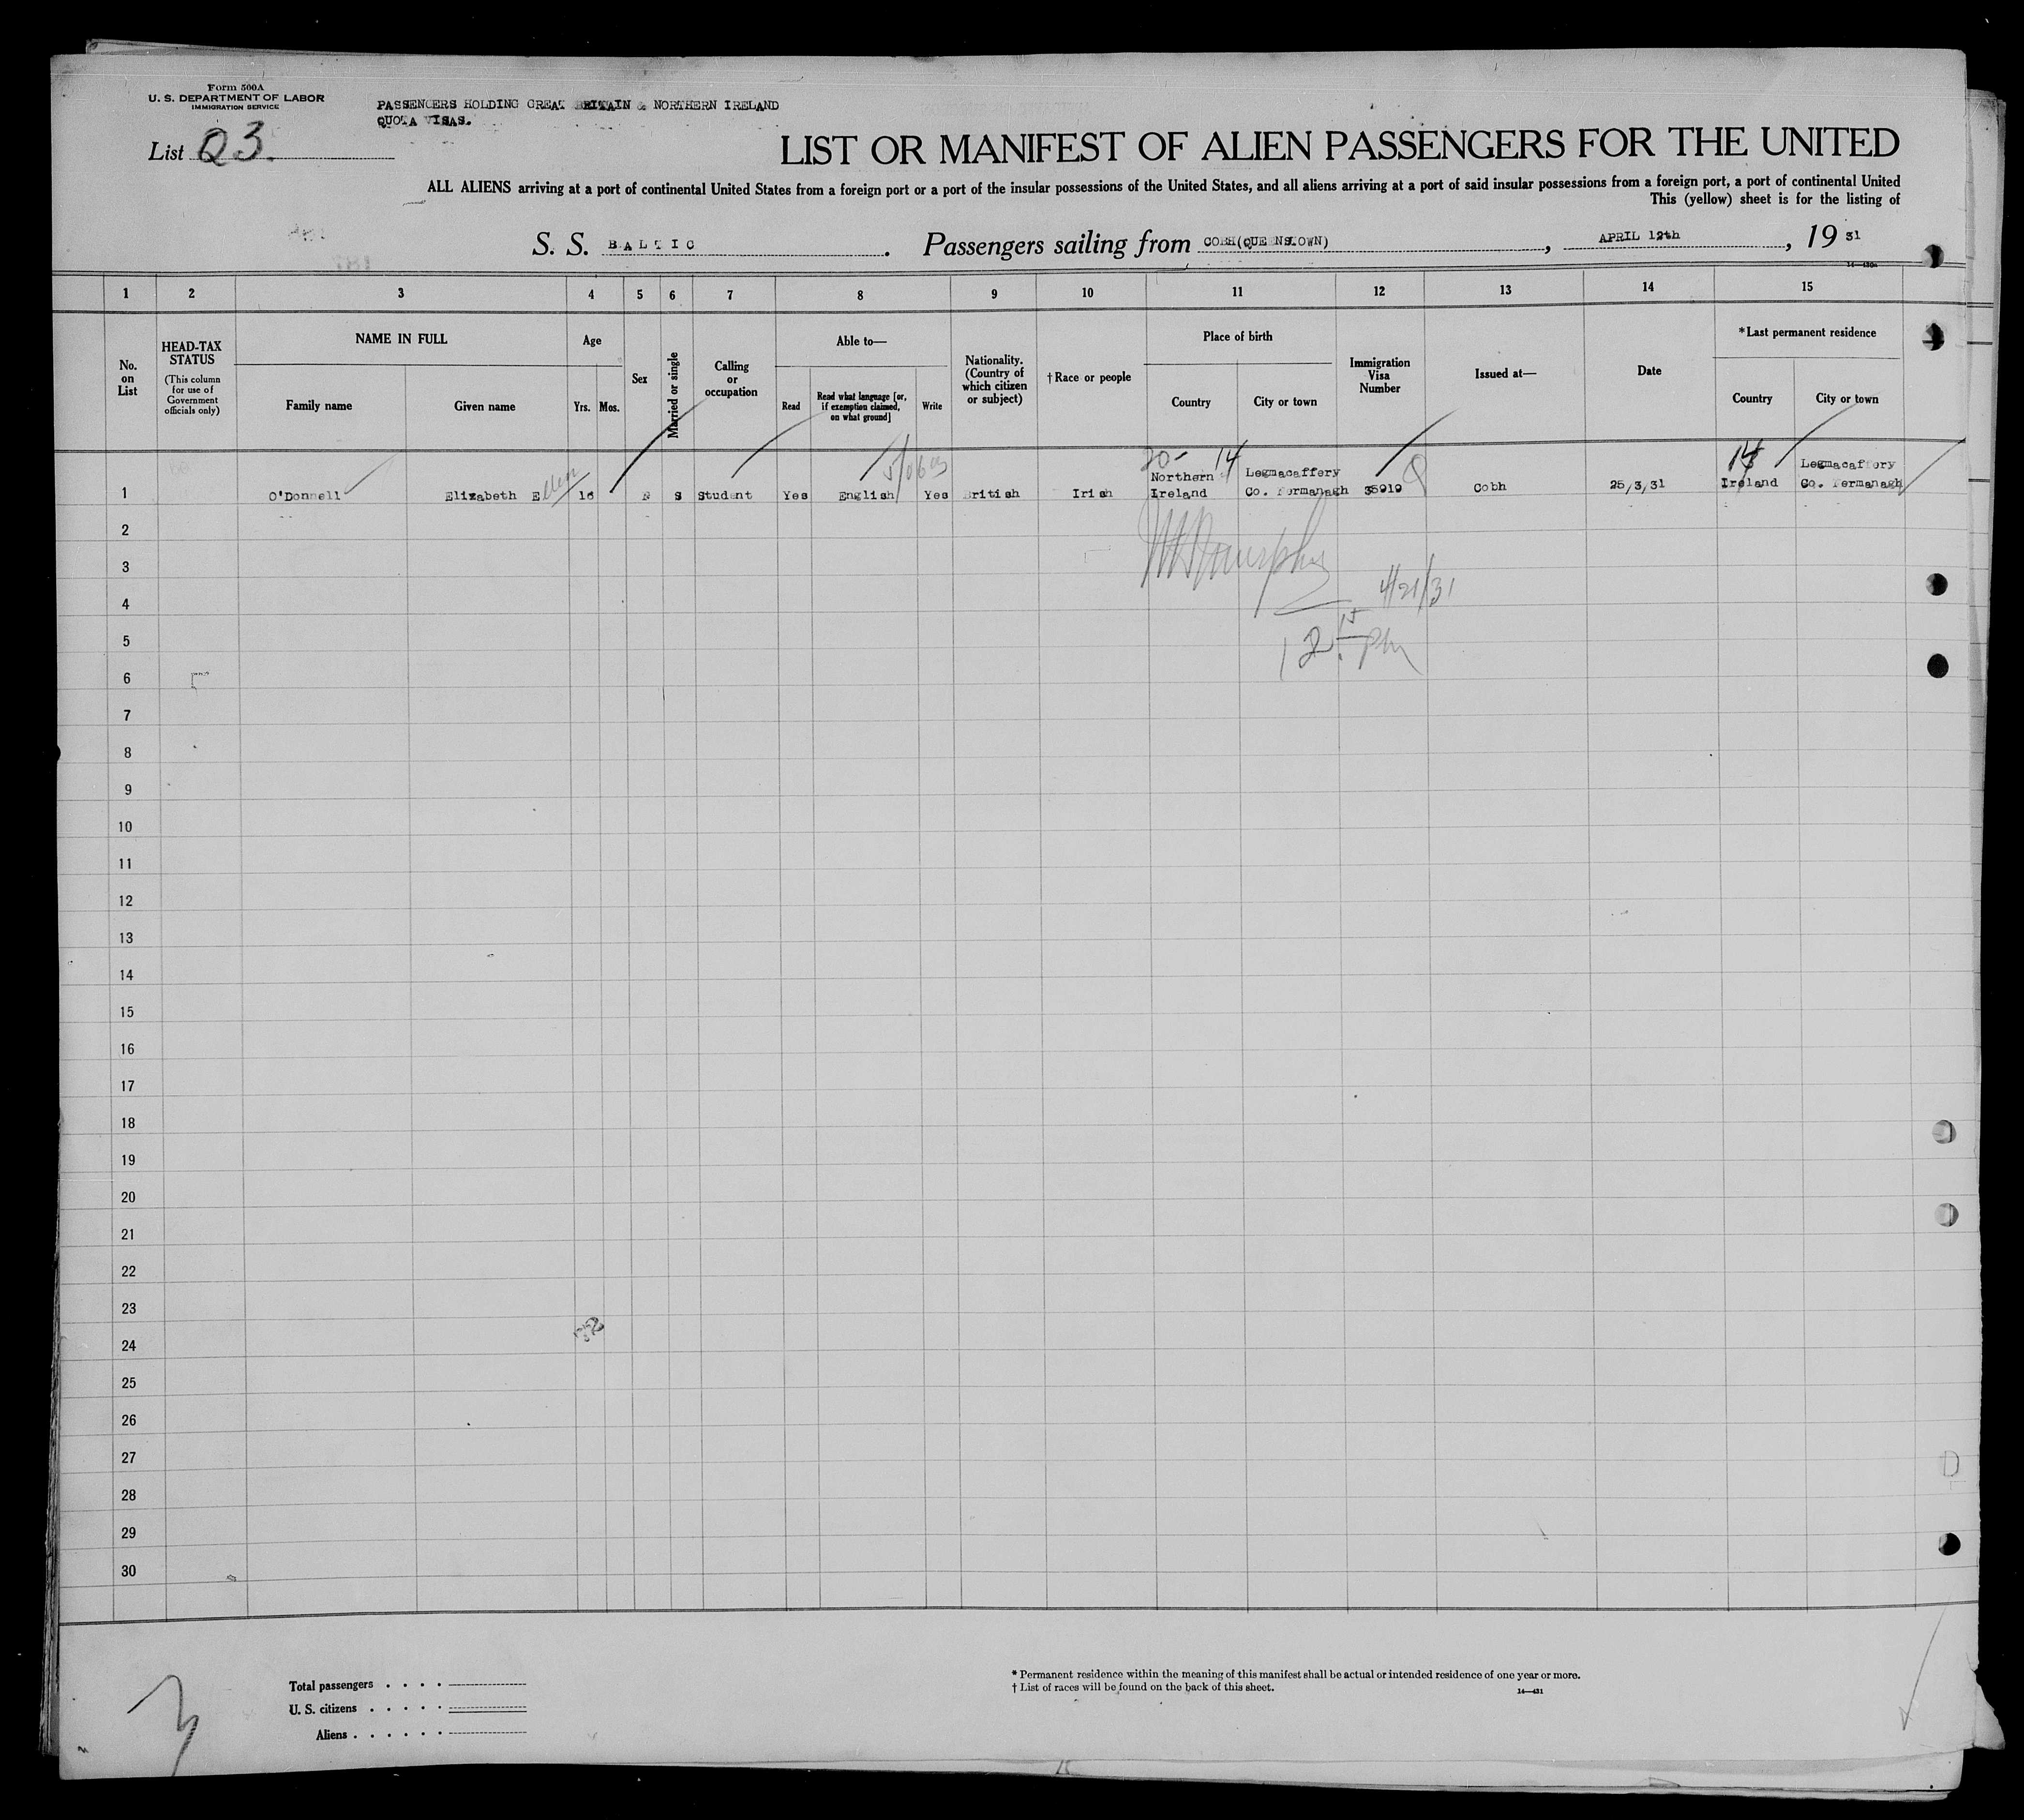 Form 500A
U. S. DEPARTMENT OF LABOR
IMMIGRATION SERVICE
PASSENGERS HOLDING GREAT BRITAIN & NORTHERN IRELAND
QUOTA VISAS.
List Q3.
LIST OR MANIFEST OF ALIEN PASSENGERS FOR THE UNITED
ALL ALIENS arriving at a port of continental United States from a foreign port or a port of the insular possessions of the United States, and all aliens arriving at a port of said insular possessions from a foreign port, a port of continental United
This (yellow) sheet is for the listing of
S. S. BALTIC. Passengers sailing from COBH(QUEENSTOWN), APRIL 12th, 1931
1 2 3 4 5 6 7 8 9 10 11 12 13 14 15
No. on List
HEAD-TAX STATUS
(This column for use of Government officials only)
NAME IN FULL
Family name
Given name
Age
Yrs. Mos.
Sex
Married or single
Calling or occupation
Able to—
Read
Read what language [or, if exemption claimed, on what ground]
Write
Nationality. (Country of which citizen or subject)
†Race or people
Place of birth
Country
City or town
Immigration Visa Number
Issued at—
Date
*Last permanent residence
Country
City or town
20- 14 14
1 O'Donnell Elizabeth E Ellen 16 S Student Yes English Yes British Irish Northern Ireland Legmacaffery Co. Fermanagh 35919 Q Cobh 25/3/31 Ireland Legmacaffery Co. Fermanagh
2
3
4/21/31
4
5
12 15 PM
6
7
8
9
10
11
12
13
14
15
16
17
18
19
20
21
22
23
24
25
26
27
28
29
30
Total passengers . . . .
U. S. citizens . . . . .
Aliens . . . . . .
* Permanent residence within the meaning of this manifest shall be actual or intended residence of one year or more.
† List of races will be found on the back of this sheet.
14—431